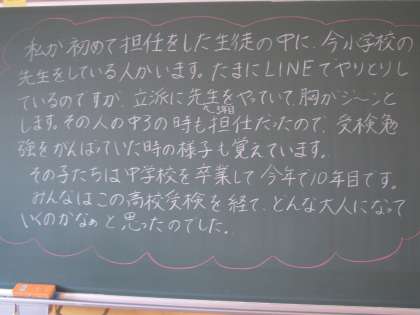 私が初めて担任をした生徒の中に、今小学校の
先生をしている人がいます。たまにLINEでやりとりし
ているのですが、立派に先生をやっていて、胸がジ〜ンと
します。その人の中3の時も担任だったので、受検勉
強をがんばっていた時の様子も覚えています。
その子たちは中学校を卒業して今年で10年目です。
みんなはこの高校受検を経て、どんな大人になって
いくのかなぁと思ったのでした。